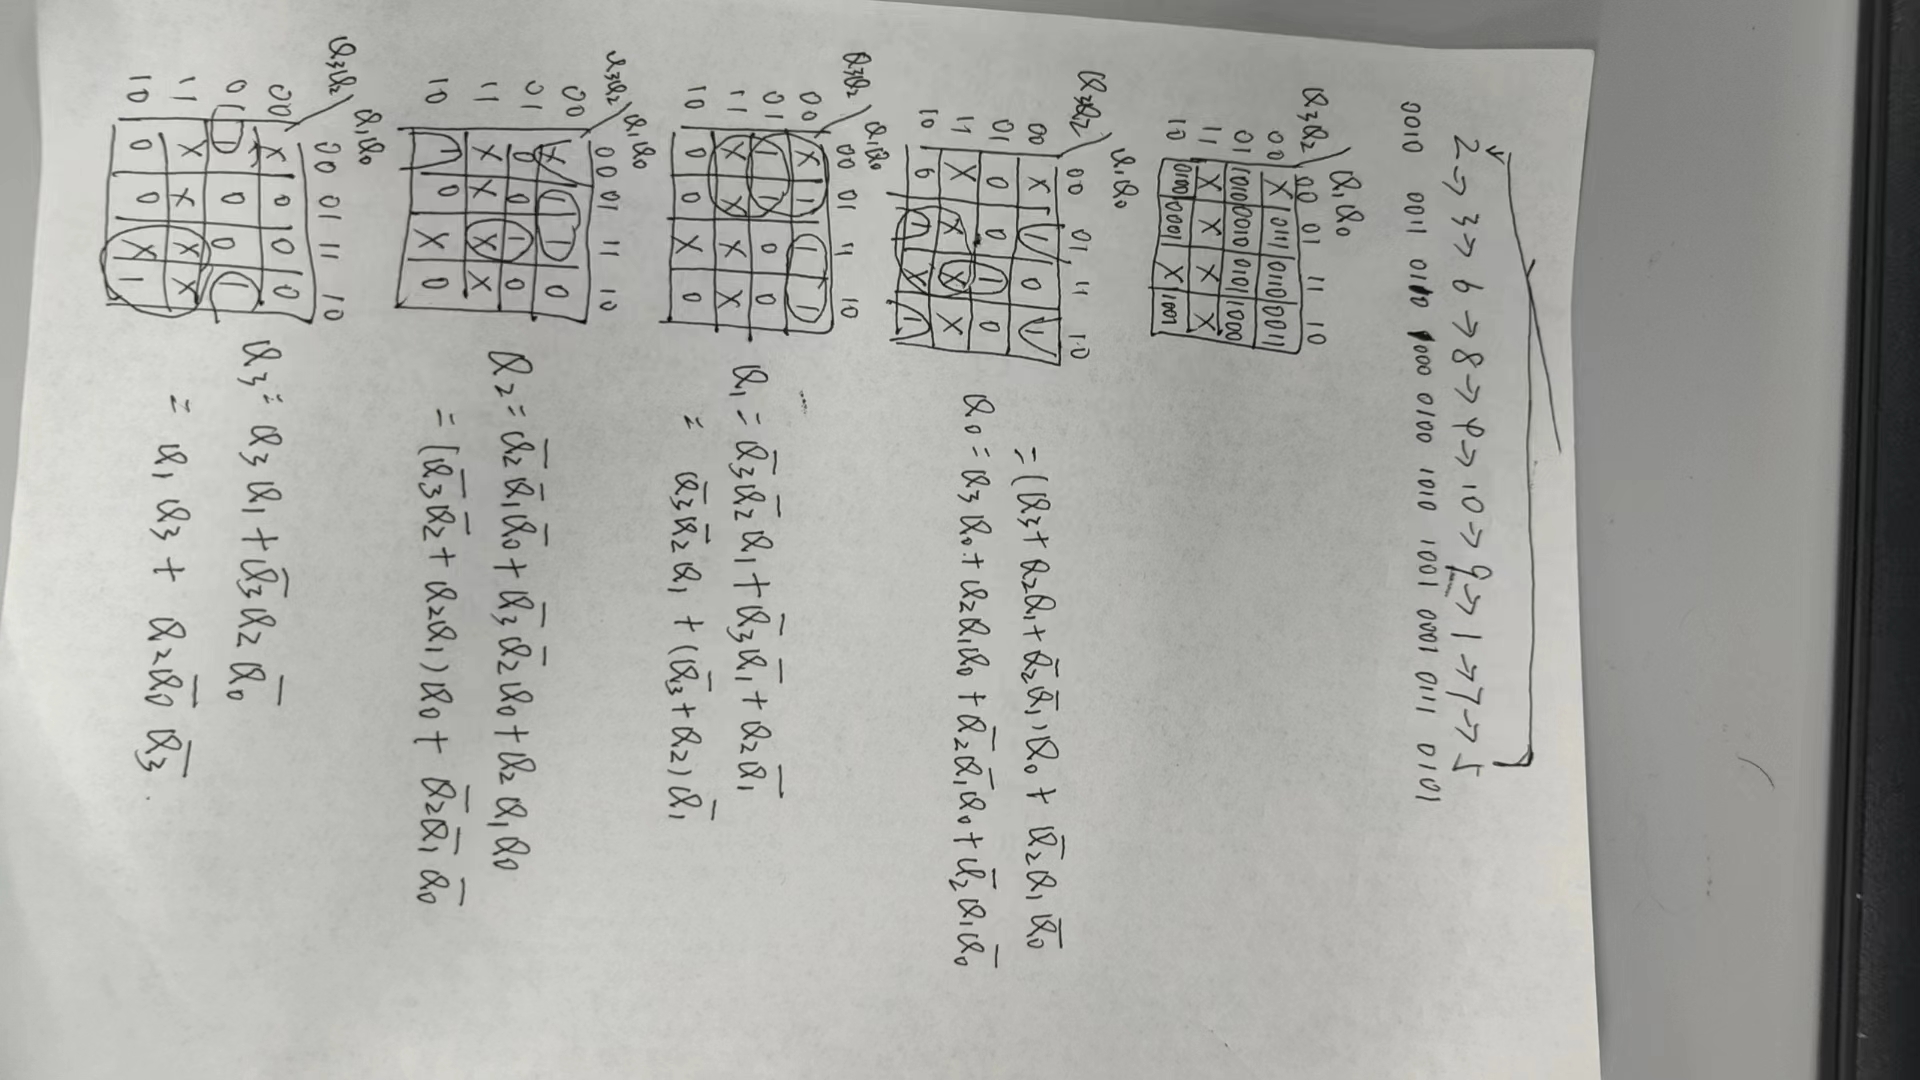 2→3→6→8→4→10→9→1→7→5
0010 0011 0110 1000 0100 1010 1001 0001 0111 0101
Q₁Q₀
Q₃Q₂ 00 01 11 10
00 X 0111 0110 0011
01 1010 0010 0101 1000
11 X X X X
10 0100 0001 X 1001
Q₁Q₀
Q₃Q₂ 00 01 11 10
00 X 1 0 1
01 0 0 1 0
11 X X X X
10 0 1 X 1
=(Q₃+Q₂Q₁+Q̅₂Q̅₁)Q₀+Q̅₂Q₁Q̅₀
Q₀=Q₃Q₀+Q₂Q₁Q₀+Q̅₂Q̅₁Q₀+Q̅₂Q₁Q̅₀
Q₁Q₀
Q₃Q₂ 00 01 11 10
00 X 1 1 1
01 1 1 0 0
11 X X X X
10 0 0 X 0
Q₁=Q̅₃Q̅₂Q₁+Q̅₃Q̅₁+Q₂Q̅₁
=Q̅₃Q̅₂Q₁+(Q̅₃+Q₂)Q̅₁
Q₁Q₀
Q₃Q₂ 00 01 11 10
00 X 1 1 0
01 0 0 1 0
11 X X X X
10 1 0 X 0
Q₂=Q̅₂Q̅₁Q̅₀+Q̅₃Q̅₂Q₀+Q₂Q₁Q₀
=(Q̅₃Q̅₂+Q₂Q₁)Q₀+Q̅₂Q̅₁Q̅₀
Q₁Q₀
Q₃Q₂ 00 01 11 10
00 X 0 0 0
01 1 0 0 1
11 X X X X
10 0 0 X 1
Q₃=Q₃Q₁+Q̅₃Q₂Q̅₀
=Q₁Q₃+Q₂Q̅₀Q̅₃.